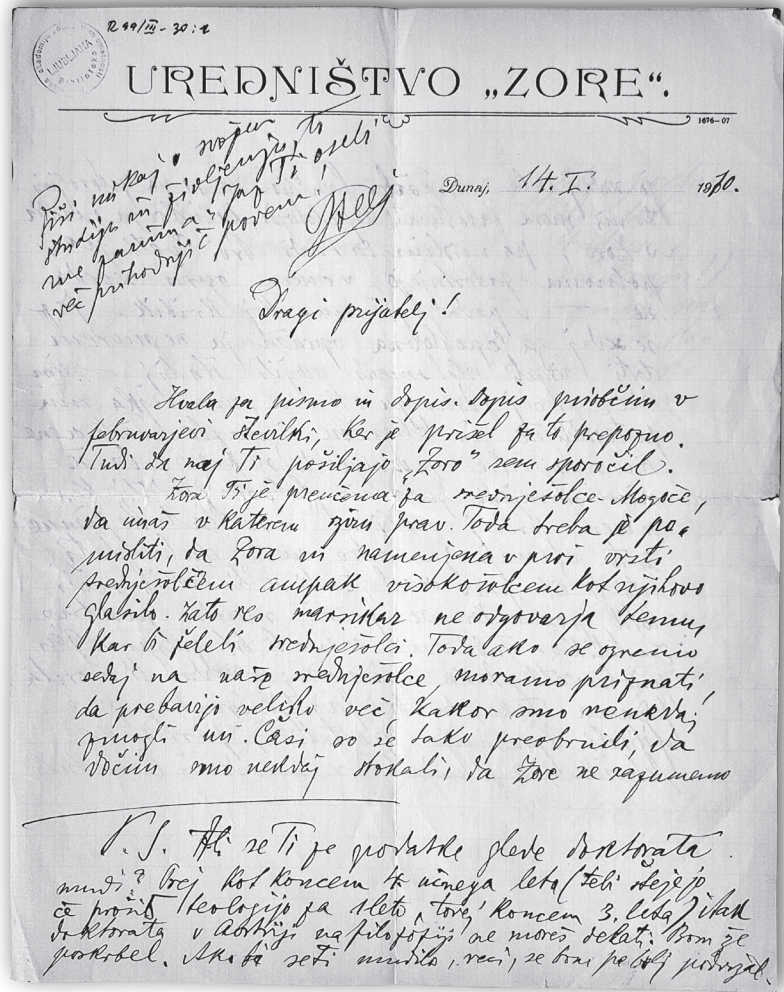 R 99/III-30:1
LJUBLJANA
UREDNIŠTVO „ZORE“.
1676-07
Piši mi kaj o svojem
študiju in življenju, to
me zanima! jaz Ti osebi
več prihodnjič povem!
Dunaj, 14. I. 1910.
Dragi prijatelj!
Hvala za pismo in dopis. Dopis priobčim v
februvarjevi številki, ker je prišel za to prepozno.
Tudi da naj Ti pošiljajo „Zoro“ sem sporočil.
Zora Ti je preučena za srednješolce. Mogoče,
da imaš v katerem oziru prav. Toda treba je po-
misliti, da Zora ni namenjena v prvi vrsti
srednješolcem ampak visokošolcem kot njihovo
glasilo. Zato res marsikaj ne odgovarja temu,
kar bi želeli srednješolci. Toda ako se ozremo
sedaj na naše srednješolce, moramo priznati,
da prebavijo veliko več, kakor smo nekdaj
zmogli mi. Časi so se tako preobrnili, da
dočim smo nekdaj stokali, da Zore ne razumemo
P. S. Ali se Ti ze podatke glede doktorata
mudi? Prej kot koncem 4 učnega leta (
če prosiš teologijo za 1 leto, torej koncem 3. leta) itak
doktorata v Avstriji na filozofiji ne moreš delati. Bom že
poskrbel. Ako bi se ti mudilo, reci, se bom pa bolj podvizal.